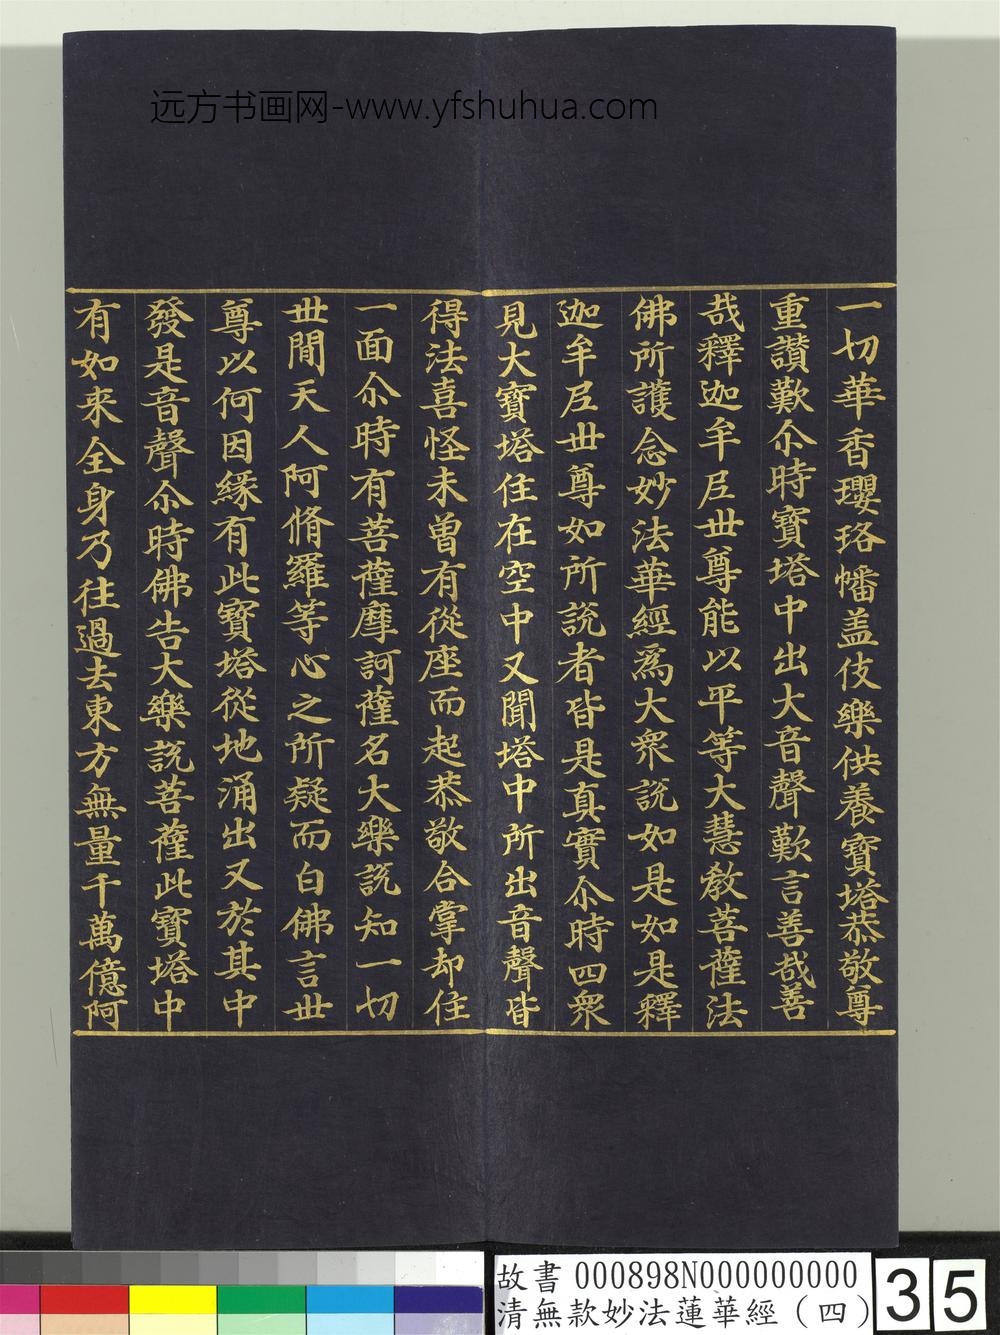 远方书画网-www.yfshuhua.com
一切華香瓔珞幡盖伎樂供養寶塔恭敬尊
重讃歎尒時寶塔中出大音聲歎言善哉善
哉釋迦牟尼世尊能以平等大慧教菩薩法
佛所護念妙法華經爲大衆說如是如是釋
迦牟尼世尊如所說者皆是真實尒時四衆
見大寶塔住在空中又聞塔中所出音聲皆
得法喜怪未曾有從座而起恭敬合掌却住
一面尒時有菩薩摩訶薩名大樂說知一切
世間天人阿脩羅等心之所疑而白佛言世
尊以何因緣有此寶塔從地涌出又於其中
發是音聲尒時佛告大樂說菩薩此寶塔中
有如来全身乃往過去東方無量千萬億阿
故書 000898N000000000
清無款妙法蓮華經（四）
35